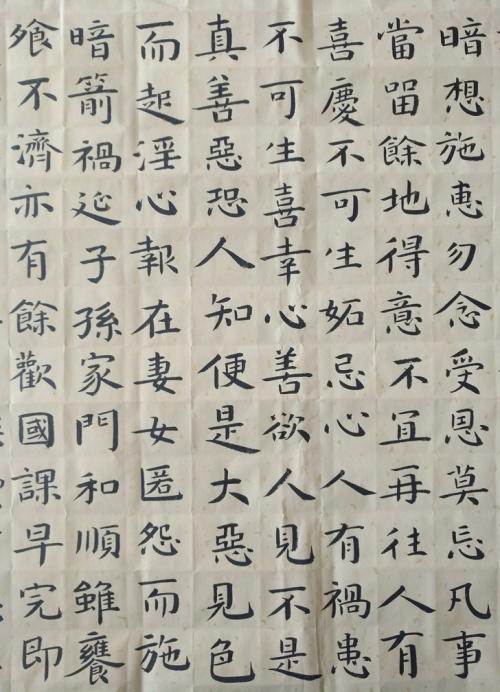 暗想施惠勿念受恩莫忘凡事
當留餘地得意不宜再往人有
喜慶不可生妬忌心人有禍患
不可生喜幸心善欲人見不是
真善惡恐人知便是大惡見色
而起淫心報在妻女匿怨而施
暗箭禍延子孫家門和順雖饔
飱不濟亦有餘歡國課早完即